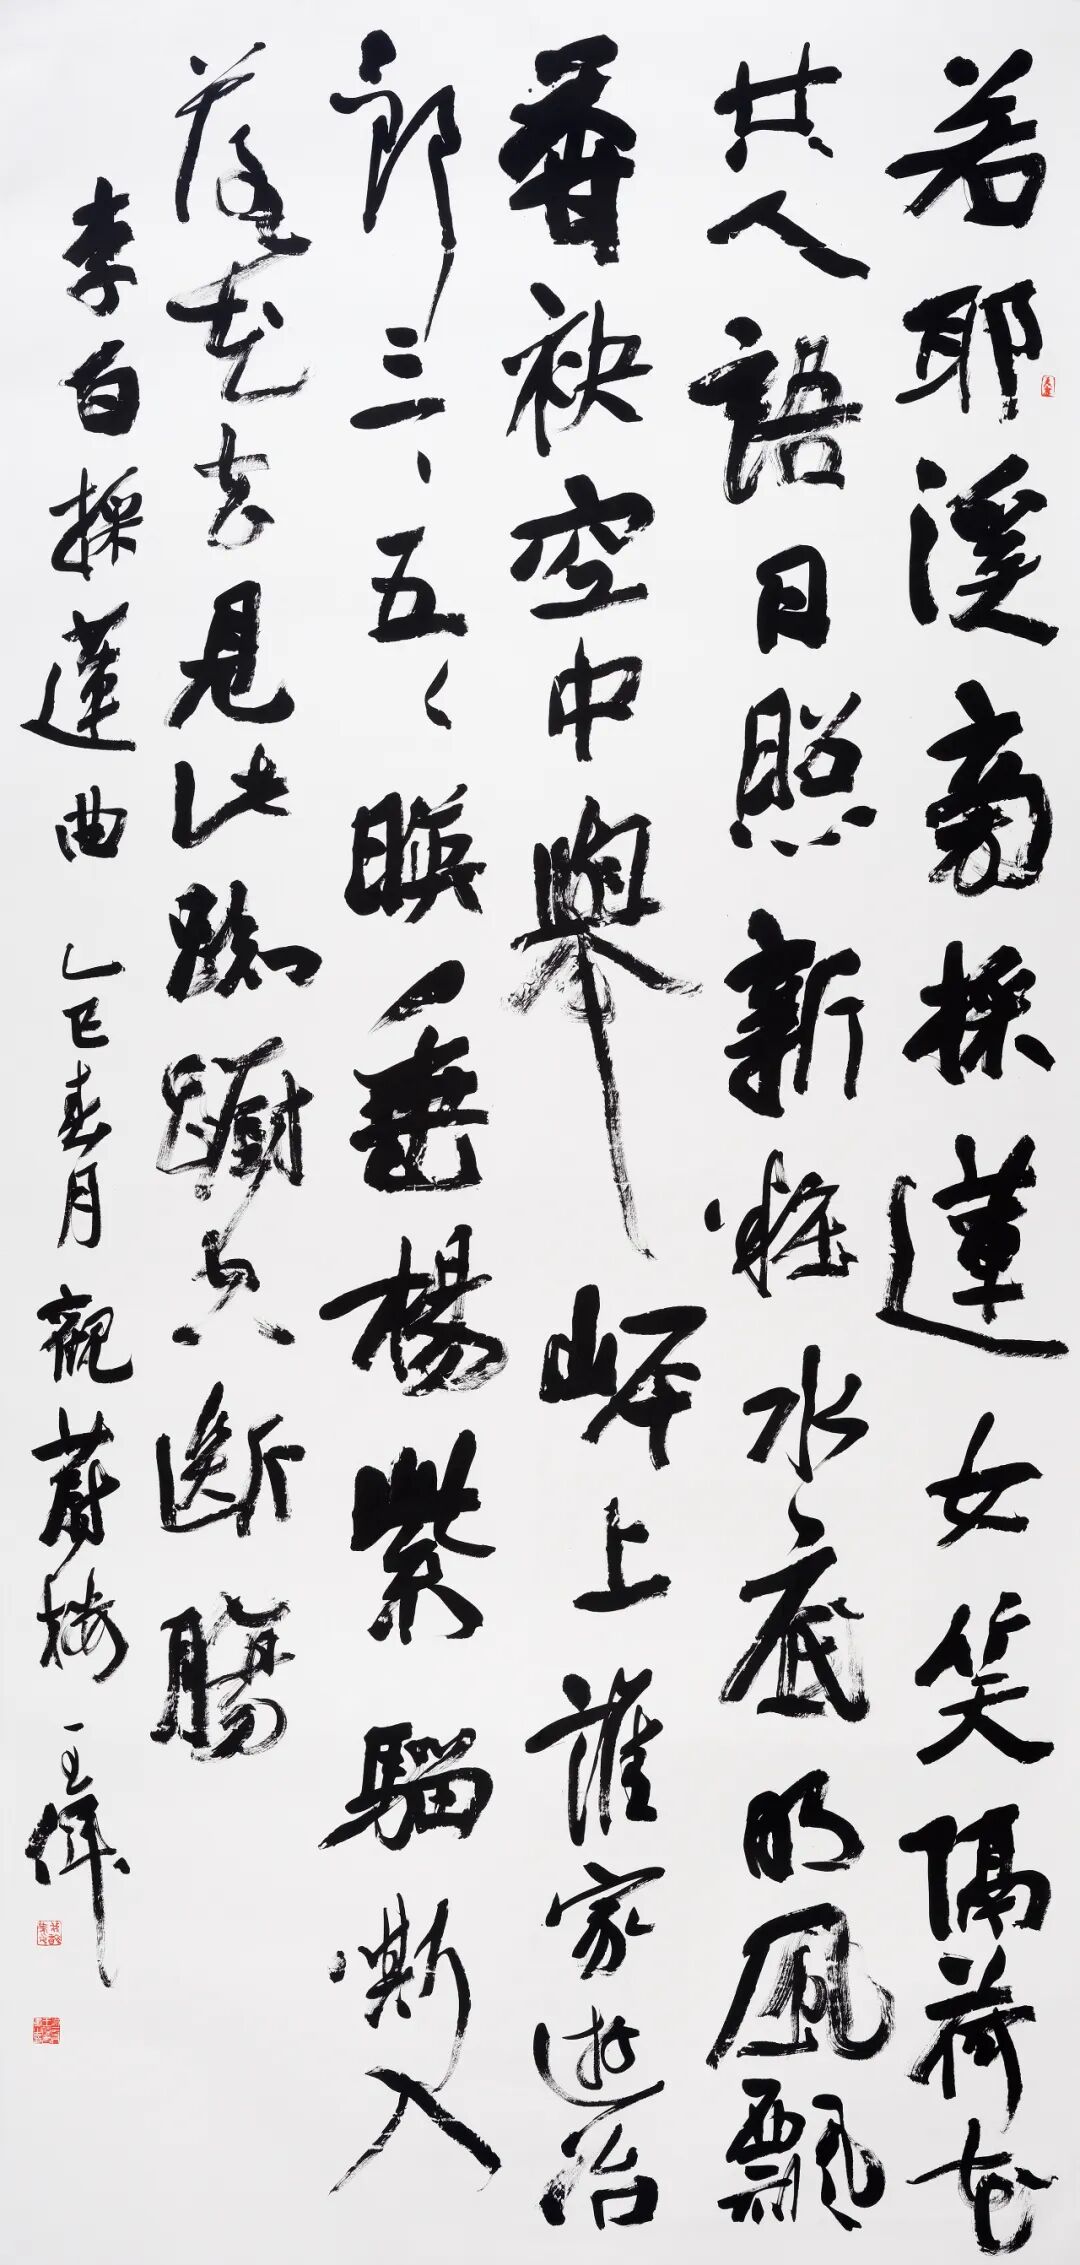 若耶溪旁採蓮女笑隔荷花
共人語日照新粧水底明風飄
香袂空中舉岸上誰家遊冶
郎三〻五〻暎垂楊紫騮嘶入
落花去見此踟躕空斷腸
李白採蓮曲 乙巳春月觀蔚樓 王偉